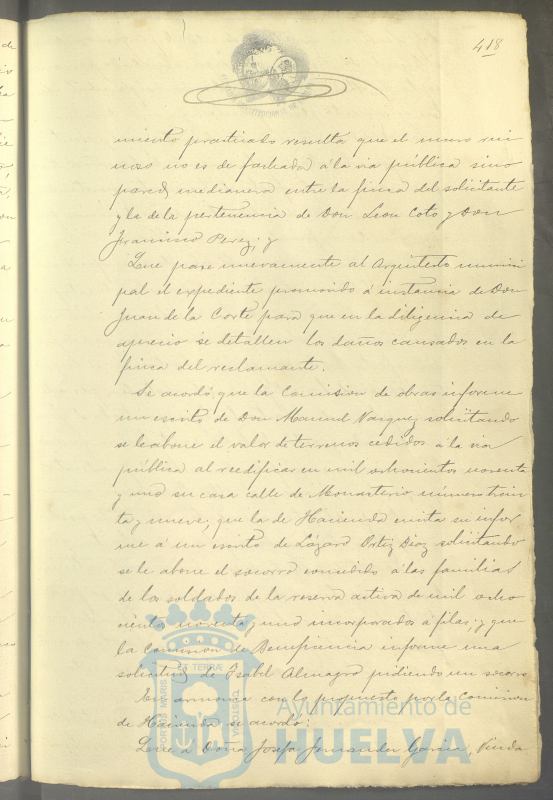 418
miento practicado resulta que el muro rui
noso no es de fachada á la via pública sino
pared medianera entre la finca del solicitante
y la de la pertenencia de Don Leon Coto y Don
Francisco Perez; y
Que pase nuevamente al Arquitecto munici
pal el expediente promovido á instancia de Don
Juan de la Corte para que en la diligencia de
aprecio se detallen los daños causados en la
finca del reclamante.
Se acordó que la Comision de obras informe
un escrito de Don Manuel Vazquez solicitando
se le abone el valor de terrenos cedidos á la via
pública al reedificar en mil ochocientos noventa
y uno su casa calle de Monasterio número trein
ta y nueve; que la de Hacienda emita su infor
me á un escrito de Lázaro Ortiz Diaz solicitando
se le abone el socorro concedido á las familias
de los soldados de la reserva activa de mil ocho
cientos noventa y uno incorporados á filas; y que
la Comision de Beneficencia informe una
solicitud de Isabel Almagro pidiendo un socorro
En armonia con lo propuesto por la Comision
de Hacienda se acordó:
Que á Doña Josefa Fernandez Garcia, Viuda
PORTUS MARIS ET TERRÆ CUSTODIA
Ayuntamiento de
HUELVA